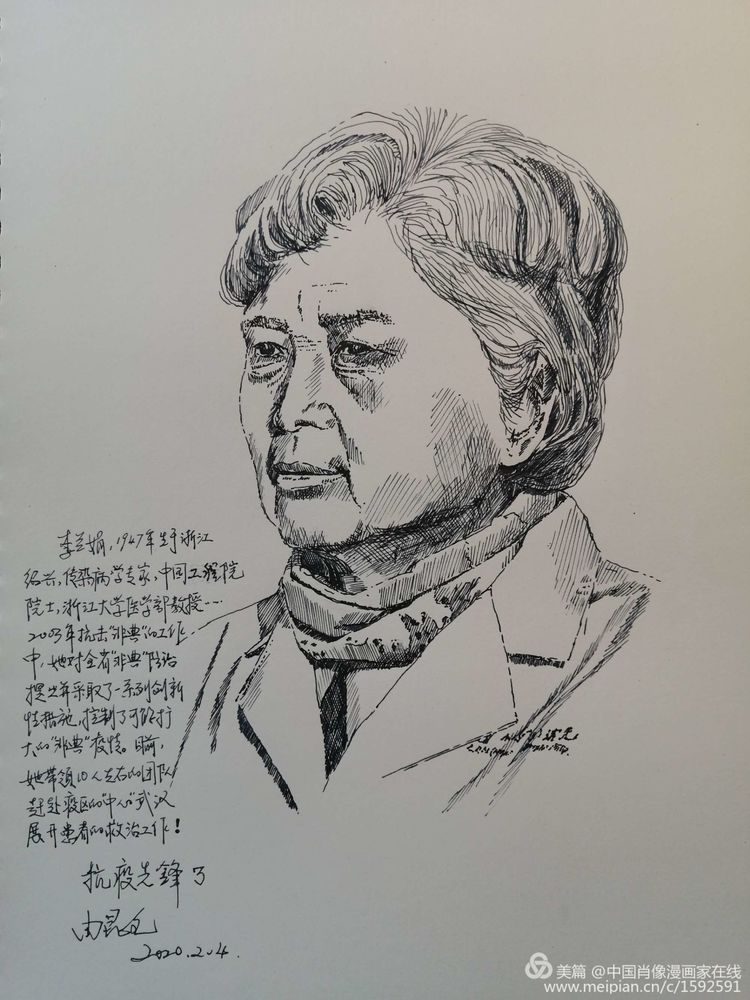 李兰娟，1947年生于浙江
绍兴，传染病学专家，中国工程院
院士，浙江大学医学部教授…
2003年抗击"非典"的工作
中，她对全省"非典"防治
提出并采取了一系列创新
性措施，控制了可能扩
大的"非典"疫情。目前，
她带领10人左右的团队
赶赴疫区的"中心"武汉
展开患者的救治工作！
抗疫先锋 3
2020.2.4.
美篇 @中国肖像漫画家在线
www.meipian.cn/c/1592591